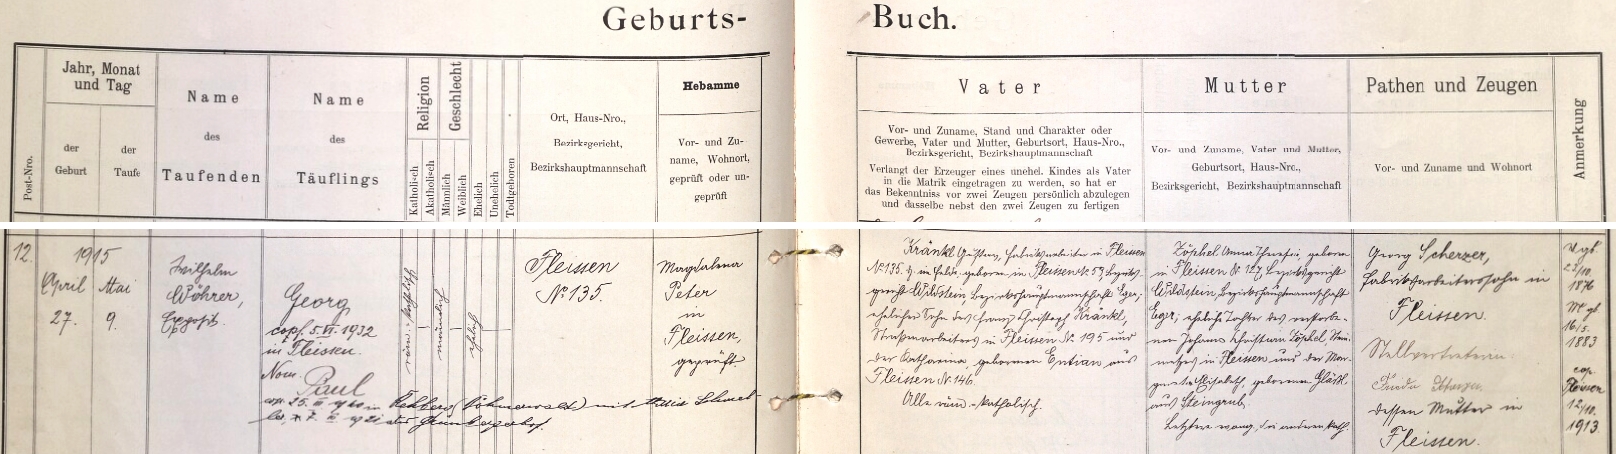 Geburts-
Buch.
Post-Nro.
Jahr, Monat
und Tag
der
Geburt
der
Taufe
Name
des
Taufenden
Name
des
Täuflings
Religion
Katholisch
Akatholisch
Geschlecht
Männlich
Weiblich
Ehelich
Unehelich
Todtgeboren
Ort, Haus-Nro.,
Bezirksgericht,
Bezirkshauptmannschaft
Hebamme
Vor- und Zu-
name, Wohnort,
geprüft oder un-
geprüft
Vater
Vor- und Zuname, Stand und Charakter oder
Gewerbe, Vater und Mutter, Geburtsort, Haus-Nro.,
Bezirksgericht, Bezirkshauptmannschaft
Verlangt der Erzeuger eines unehel. Kindes als Vater
in die Matrik eingetragen zu werden, so hat er
das Bekenntniss vor zwei Zeugen persönlich abzulegen
und dasselbe nebst den zwei Zeugen zu fertigen
Mutter
Vor- und Zuname, Vater und Mutter,
Geburtsort, Haus-Nro.,
Bezirksgericht, Bezirkshauptmannschaft
Pathen und Zeugen
Vor- und Zuname und Wohnort
Anmerkung
12.
1915
April Mai
27. 9.
Wilhelm
Wöhrer,
Georg
copl. 5. VI. 1932
in Fleissen.
Nom. Paul
röm. katholisch
männlich
ehelich
Fleissen
No 135.
Magdalena
Peter
in
Fleissen,
geprüft.
Rehberg (Böhmerwald) mit
Kränkl Gustav, Fabriksarbeiter in Fleissen
No 135, geboren in Fleissen No 53, Bezirks-
gericht Wildstein, Bezirkshauptmannschaft Eger,
ehelicher Sohn des Franz Christoph Kränkl,
Straßenarbeiters in Fleissen No 195 und
der Katharina, geborenen Entian aus
Fleissen No 146.
Alle röm.-katholisch.
Zöphel Anna Theresia, geboren
in Fleissen No 127, Bezirksgericht
Wildstein, Bezirkshauptmannschaft
Eger, eheliche Tochter des verstorbe-
nen Johann Christian Zöphel, Stein-
metzes in Fleissen und der Mar-
gareta Elisabeth, geborenen Gläßl
aus Steingrub.
Letztere evang., die anderen kath.
Georg Scherzer,
Fabriksarbeiterssohn in
Fleissen.
Stellvertreterin:
dessen Mutter in
Fleissen.
V. gb.
23/10.
1876
M. gb.
16/5.
1883
cop.
Fleissen
12/10.
1913.